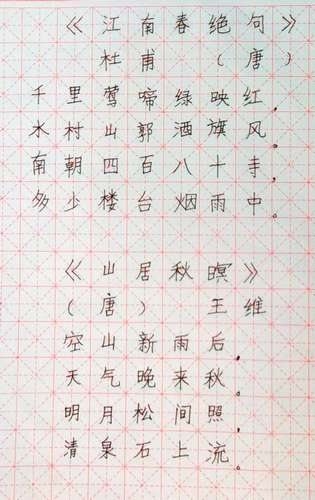 《江南春绝句》
杜甫（唐）
千里莺啼绿映红，
水村山郭酒旗风。
南朝四百八十寺，
多少楼台烟雨中。
《山居秋暝》
（唐）王维
空山新雨后，
天气晚来秋。
明月松间照，
清泉石上流。